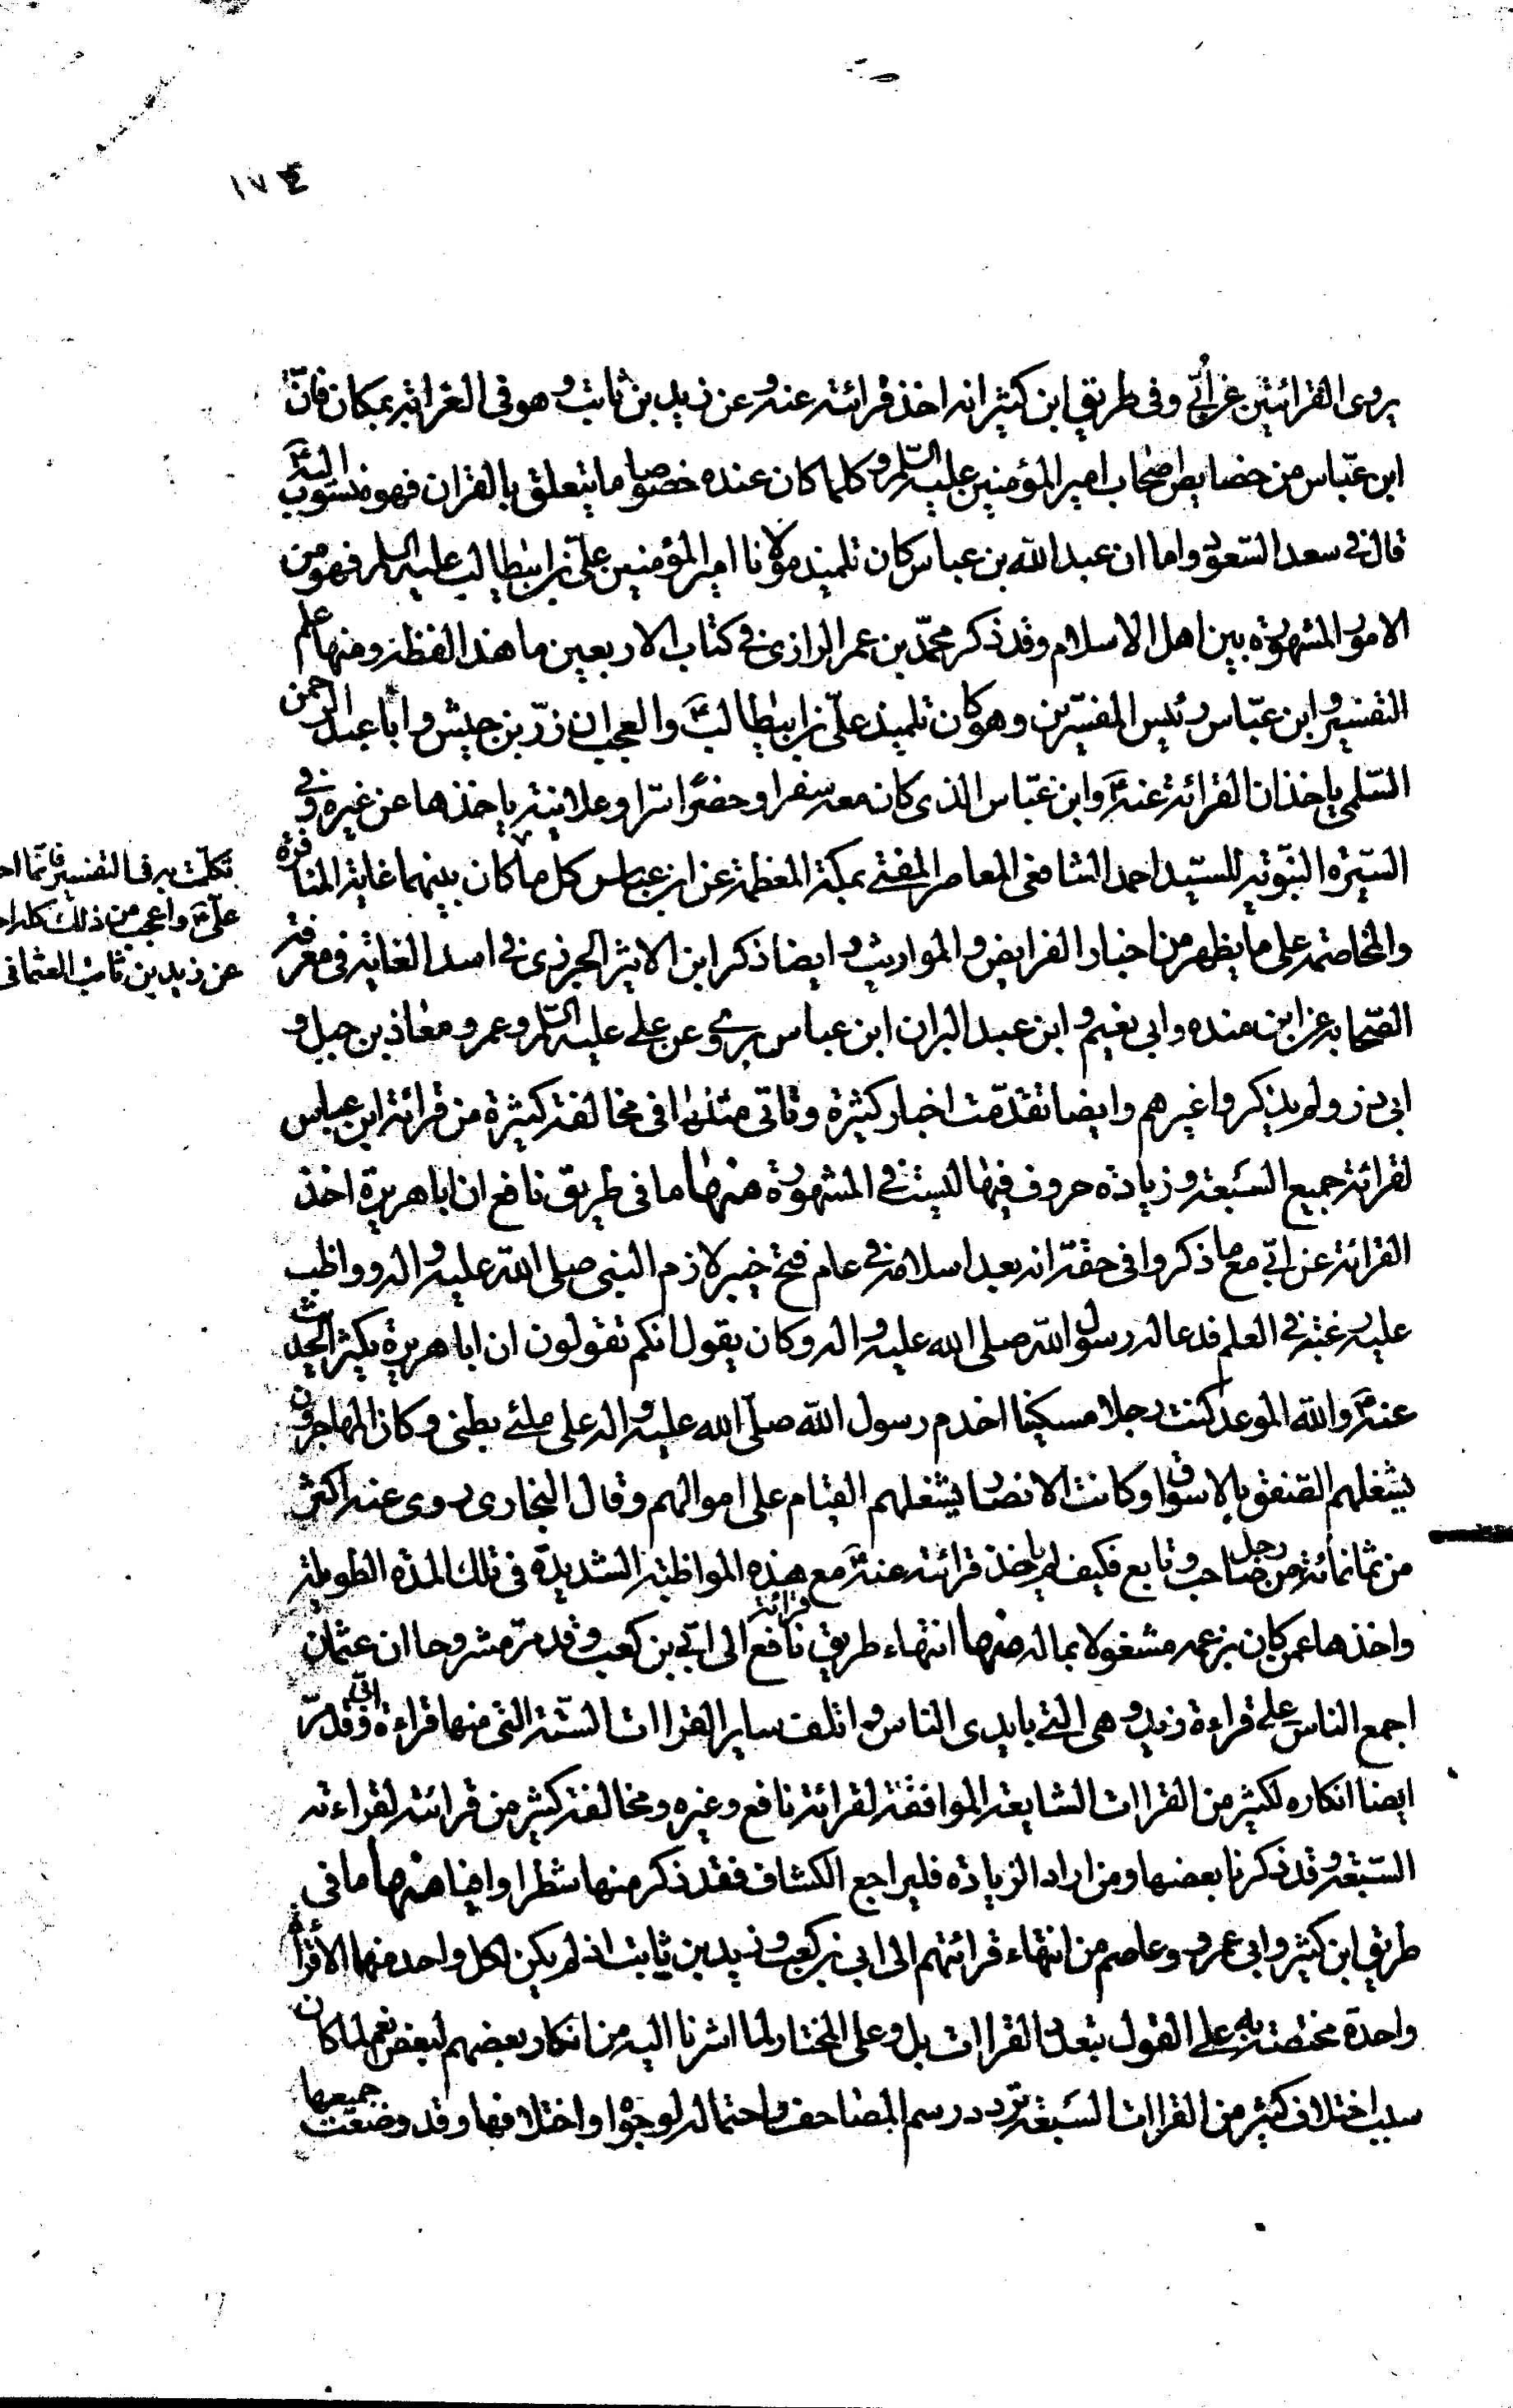 ١٧٤
يروى القرائتين عن أبيّ وفى طريق ابن كثير انه اخذ قرائته عنه وعن زيد بن ثابت وهو فى الغرابة بمكان فانّ
ابن عبّاس من خصايص اصحاب امير المؤمنين عليه السّلم وكلما كان عنده خصوصا ما يتعلق بالقران فهو منسوب اليه ؑ
قال فى سعد السّعود واما ان عبد الله بن عباس كان تلميذ مولانا امير المؤمنين علىّ بن ابيطالب عليه السلم فهو من
الامور المشهورة بين اهل الاسلام وقد ذكر محمّد بن عمر الرازى فى كتاب الاربعين ما هذا لفظه ومنها علم
التفسير وابن عبّاس رئيس المفسّرين وهو كان تلميذ علىّ بن ابيطالب ؑ والعجب ان زرّ بن حبيش وابا عبد الرحمن
السّلمى ياخذان القرائة عنه ؑ وابن عبّاس الذى كان معه سفرا وحضرًا سّرا وعلانية ياخذها عن غيره وفى
السّيرة النّبوّية للسّيد احمد الشافعى المعاصر المفتى بمكة المعظمة عن ابن عباس كل ما
تكلّمت به فى التفسير فانّما
علىّ ؑ واعجب من ذلك كله
عن زيد بن ثابت العثمانى
كان بينهما غاية المنافرة
والمخاصمة على ما يظهر من اخبار الفرايض والمواريث وايضا ذكر ابن الاثير الجزرى فى اسد الغابة فى معرفة
الصّحابة عن ابن منده وابى نعيم وابن عبد البر ان ابن عباس يروى عن على عليه السّلم وعمر ومعاذ بن جبل و
ابى ذر ولم يذكروا غيرهم وايضا تقدّمت اخبار كثيرة وتاتى مثلها فى مخالفة كثيرة من قرائة ابن عباس
لقرائة جميع السّبعة وزيادة حروف فيها ليست فى المشهورة منها ما فى طريق نافع ان ابا هريرة اخذ
القرائة عن ابىّ مع ما ذكروا فى حقّه انه بعد اسلامه فى عام فتح خيبر لازم النبى صلى الله عليه واله وواظب
عليه رغبة فى العلم فدعا له رسول الله صلى الله عليه واله وكان يقول انكم تقولون ان ابا هريرة يكثر الحديث
عنه ؐ والله الموعد كنت رجلا مسكينا اخدم رسول الله صلّى الله عليه واله على ملئ بطنى وكان المهاجرون
يشغلهم الصّفق بالاسواق وكانت الانصار يشغلهم القيام على اموالهم وقال البخارى روى عنه اكثر
من ثمانمائة رجل من صاحب وتابع فكيف لم ياخذ قرائته عنه ؐ مع هذه المواظبة الشديدة فى تلك المدة الطويلة
واخذها عمن كان بزعمه مشغولا بماله منها انتهاء طريق قرائة نافع الى ابىّ بن كعب وقد مرّ مشروحا ان عثمان
اجمع الناس على قراءة زيد وهى التى بايدى الناس واتلف ساير القراات الستّة التى منها قراءة ابىّ وقد مرّ
ايضا انكاره لكثير من القراات الشايعة الموافقة لقرائة نافع وغيره ومخالفة كثير من قرائته لقراءته
السّبعة وقد ذكرنا بعضها ومن اراد الزيادة فليراجع الكشاف فقد ذكر منها شطرا وافيا منها ما فى
طريق ابن كثير وابى عمرو وعاصم من انتهاء قرائتهم الى ابى بن كعب وزيد بن ثابت اذ لم يكن لكل واحد منهما الا قرأة
واحدة مختصة به على القول بتعدد القراات بل وعلى المختار لما اشرنا اليه من انكار بعضهم لبعض نعم لما كان
سبب اختلاف كثير من القراات السّبعة تردد رسم المصاحف واحتماله لوجوه واختلافها وقد وضعت جميعها